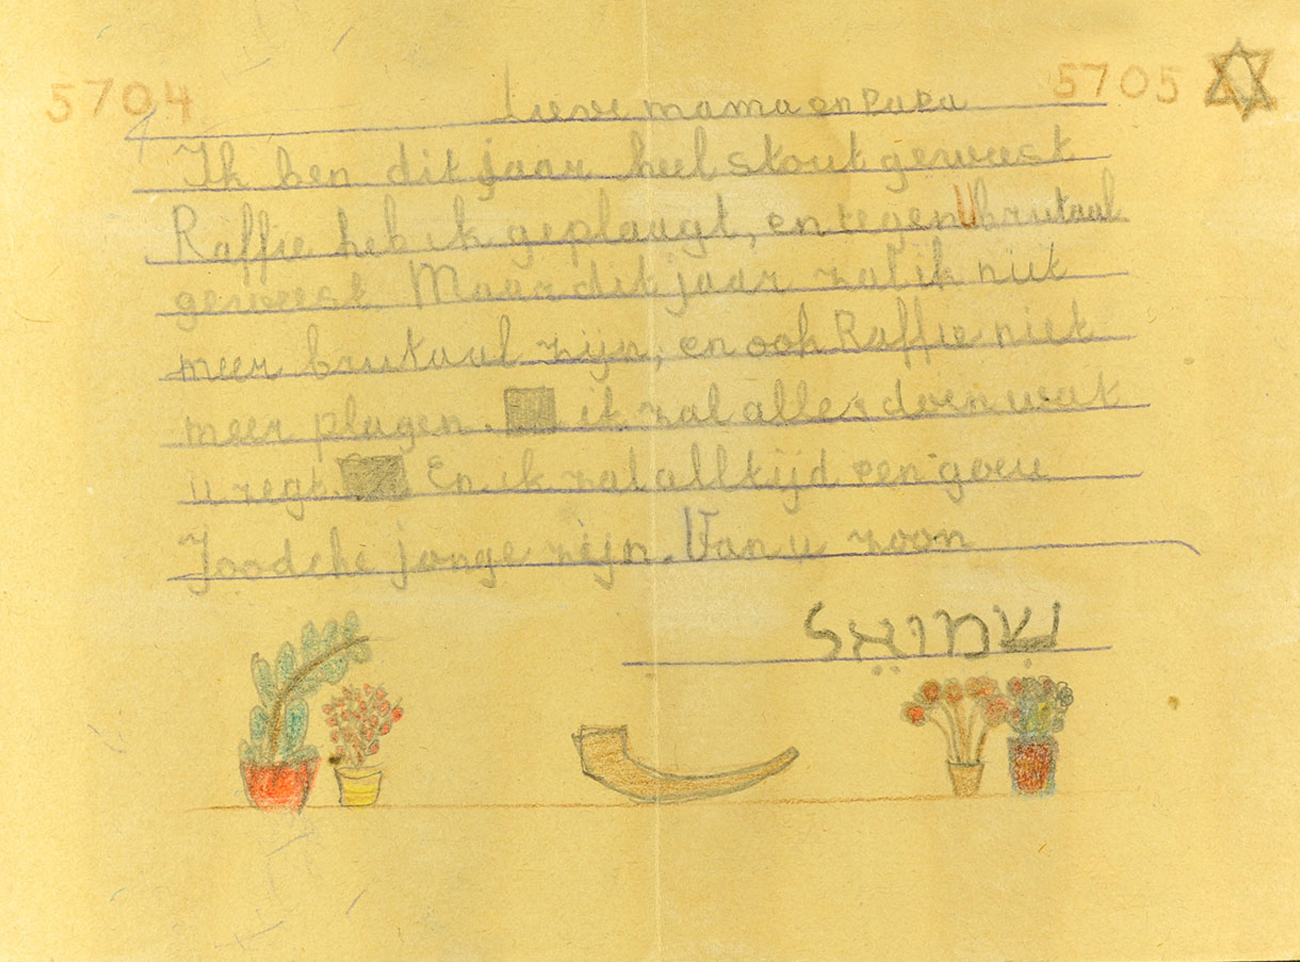 5704 5705
Lieve mama en papa
Ik ben dit jaar heel stout geweest
Raffie heb ik geplaagt, en tegen U brutaal
geweest Maar dit jaar zal ik niet
meer brutaal zijn, en ook Raffie niet
meer plagen. ik zal alles doen wat
u zegt. En ik zal alltijd een goeie
Joodsche jonge zijn. Van u zoon
שמואל